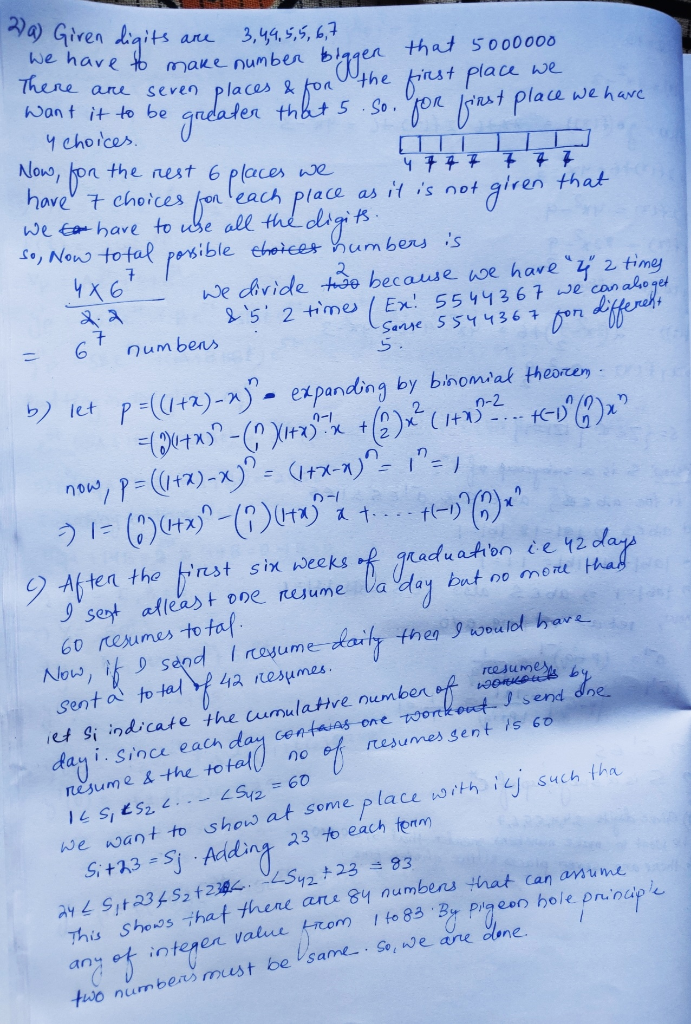 2) a) Given digits are 3,4,4,5,5,6,7
we have to make number bigger that 5000000
There are seven places & for the first place we
want it to be greater that 5. So, for first place we have
4 choices.
4 7 7 7 7 7 7
Now, for the rest 6 places we
have 7 choices for each place as it is not given that
we have to use all the digits.
so, Now total possible choices numbers is
4 × 6^7 / 2.2 we divide two 2 because we have "4" 2 times
& '5' 2 times (Ex: 5544367 we can also get
Same 5544367 for different
5.
= 6^7 numbers
b) let p = ((1+x)-x)^n expanding by binomial theorem.
= (n 0)(1+x)^n - (n 1)(1+x)^{n-1}.x + (n 2)x^2 (1+x)^{n-2} ... +(-1)^n (n n) x^n
now, p = ((1+x)-x)^n = (1+x-x)^n = 1^n = 1
⇒ 1 = (n 0)(1+x)^n - (n 1)(1+x)^{n-1} x + .... +(-1)^n (n n) x^n
c) After the first six weeks of graduation i.e 42 days
I sent atleast one resume a day but no more than
60 resumes total.
Now, if I send 1 resume daily then I would have
sent a total of 42 resumes.
let Si indicate the cumulative number of workouts resumes by
day i. Since each day contains one workout I send one
resume & the total no of resumes sent is 60
1 ≤ S1 < S2 < ... < S42 = 60
we want to show at some place with i<j such tha
Si+23 = Sj. Adding 23 to each term
24 ≤ S1+23 < S2+23 < ... < S42+23 = 83
This shows that there are 84 numbers that can assume
any of integer value from 1 to 83. By pigeon hole principle
two numbers must be same. So, we are done.